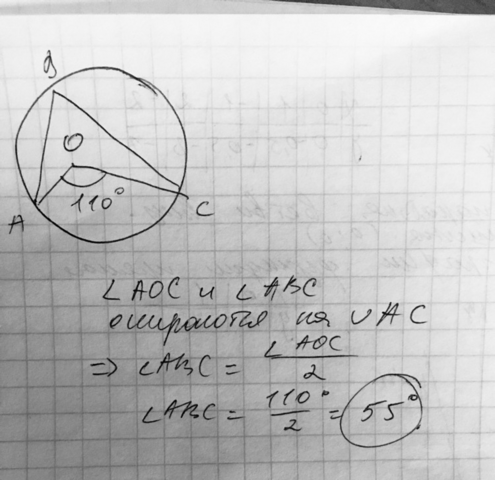 B
O
110°
A
C
∠AOC и ∠ABC
опираются на ∪AC
⇒ ∠ABC = ∠AOC / 2
∠ABC = 110° / 2 = 55°